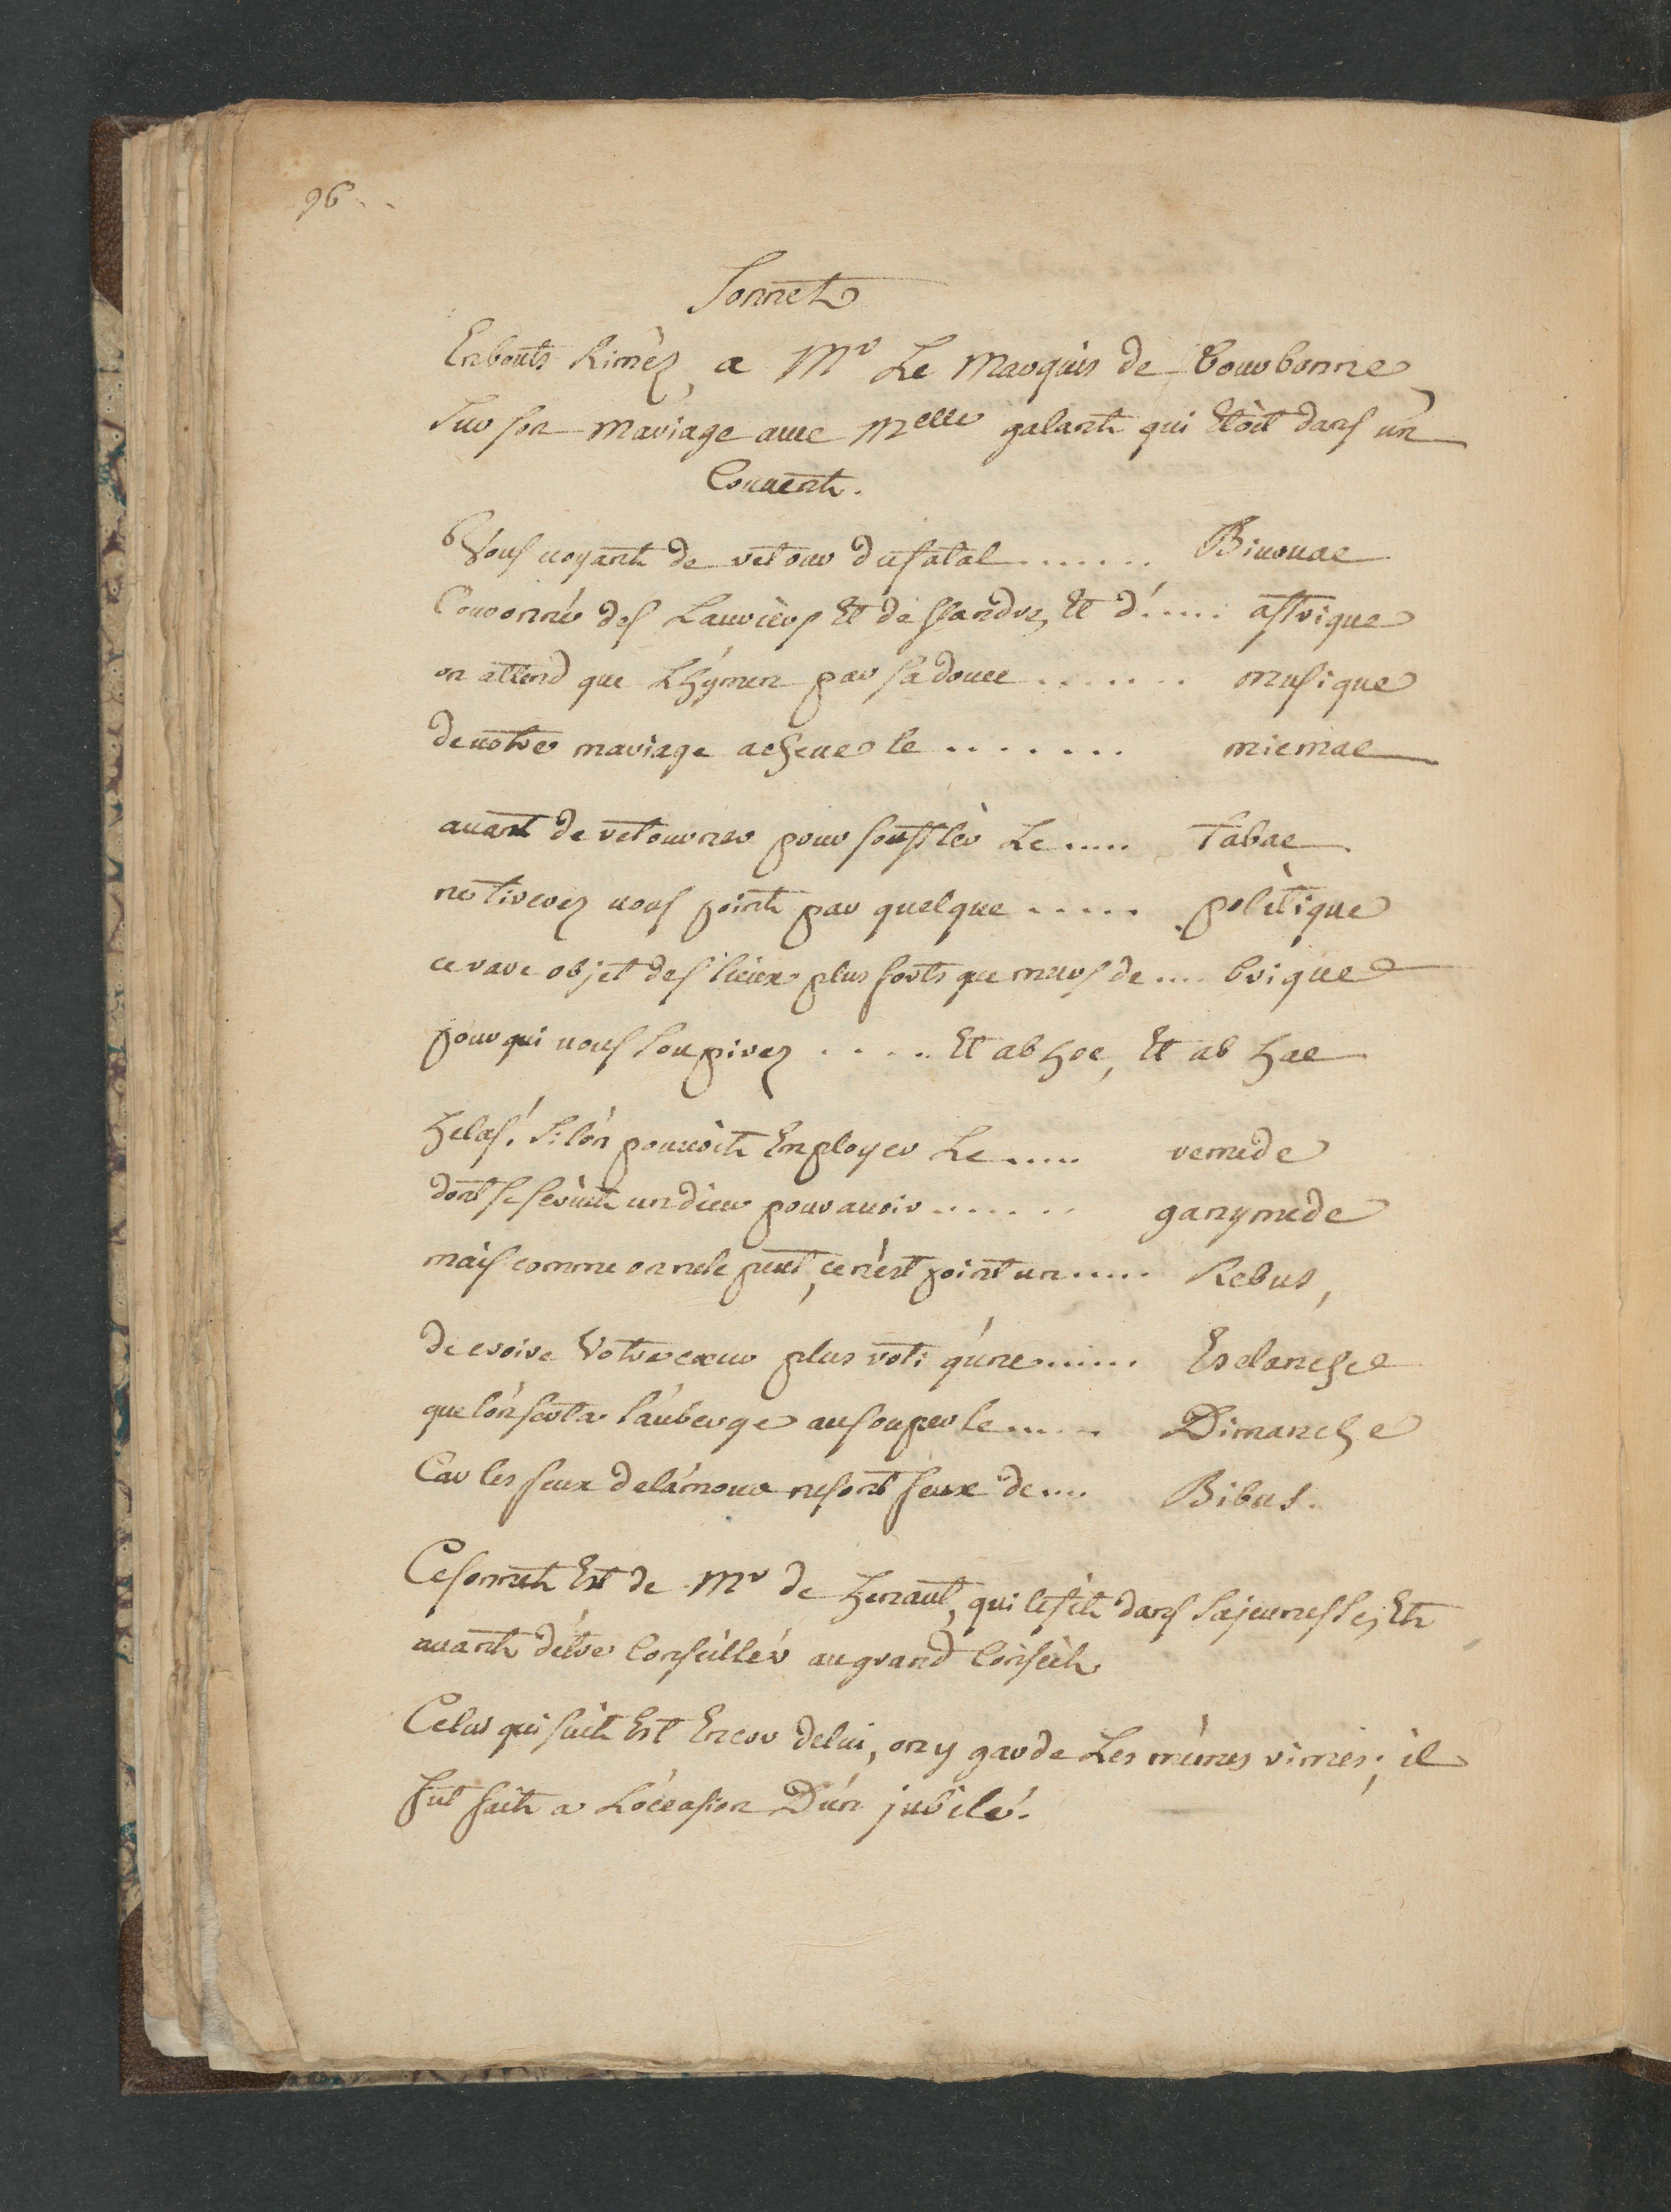 96
Sonnet
En bouts Rimèz, a Mr Le Marquis de Bourbonne
sur son mariage auec Melle galant qui Etòit dans un
Couuent.
Vous uoyant de retour du fatal ....... Biuouac
Couronné des Lauriers Et de flandre, Et d' ..... affrique
on attend que Lhymen par sa douce ....... musique
de uotre mariage acheue le ....... micmac
auant de retourner pour souffler Le ..... Tabac
ne tirerez uous point par quelque ..... politique
ce rare objet des lieux plus forts que murs de .... brique
pour qui uous soupirez ..... Et ab hoc, Et ab hac
helas! si lón pouuòit Employer Le ..... remede
dont se seruit un dieu pour auoir ....... ganymede
mais comme on ne le peut, ce nést point un ..... Rebus,
de croire Votre cœur plus roti qúne ...... Esclanche
que lón sert a l'auberge au souper le ..... Dimanche
Car les feux de lámour ne sont feux de .... Bibus.
Ce sonnet Est de Mr de henaut, qui le fit dans sa jeunesse, Et
auant détre Conseiller au grand Conseil
Celui qui suit Est Encor de lui, on y garde Les mémes rimes; il
fut fait a Lóccasion Dún jubilé.